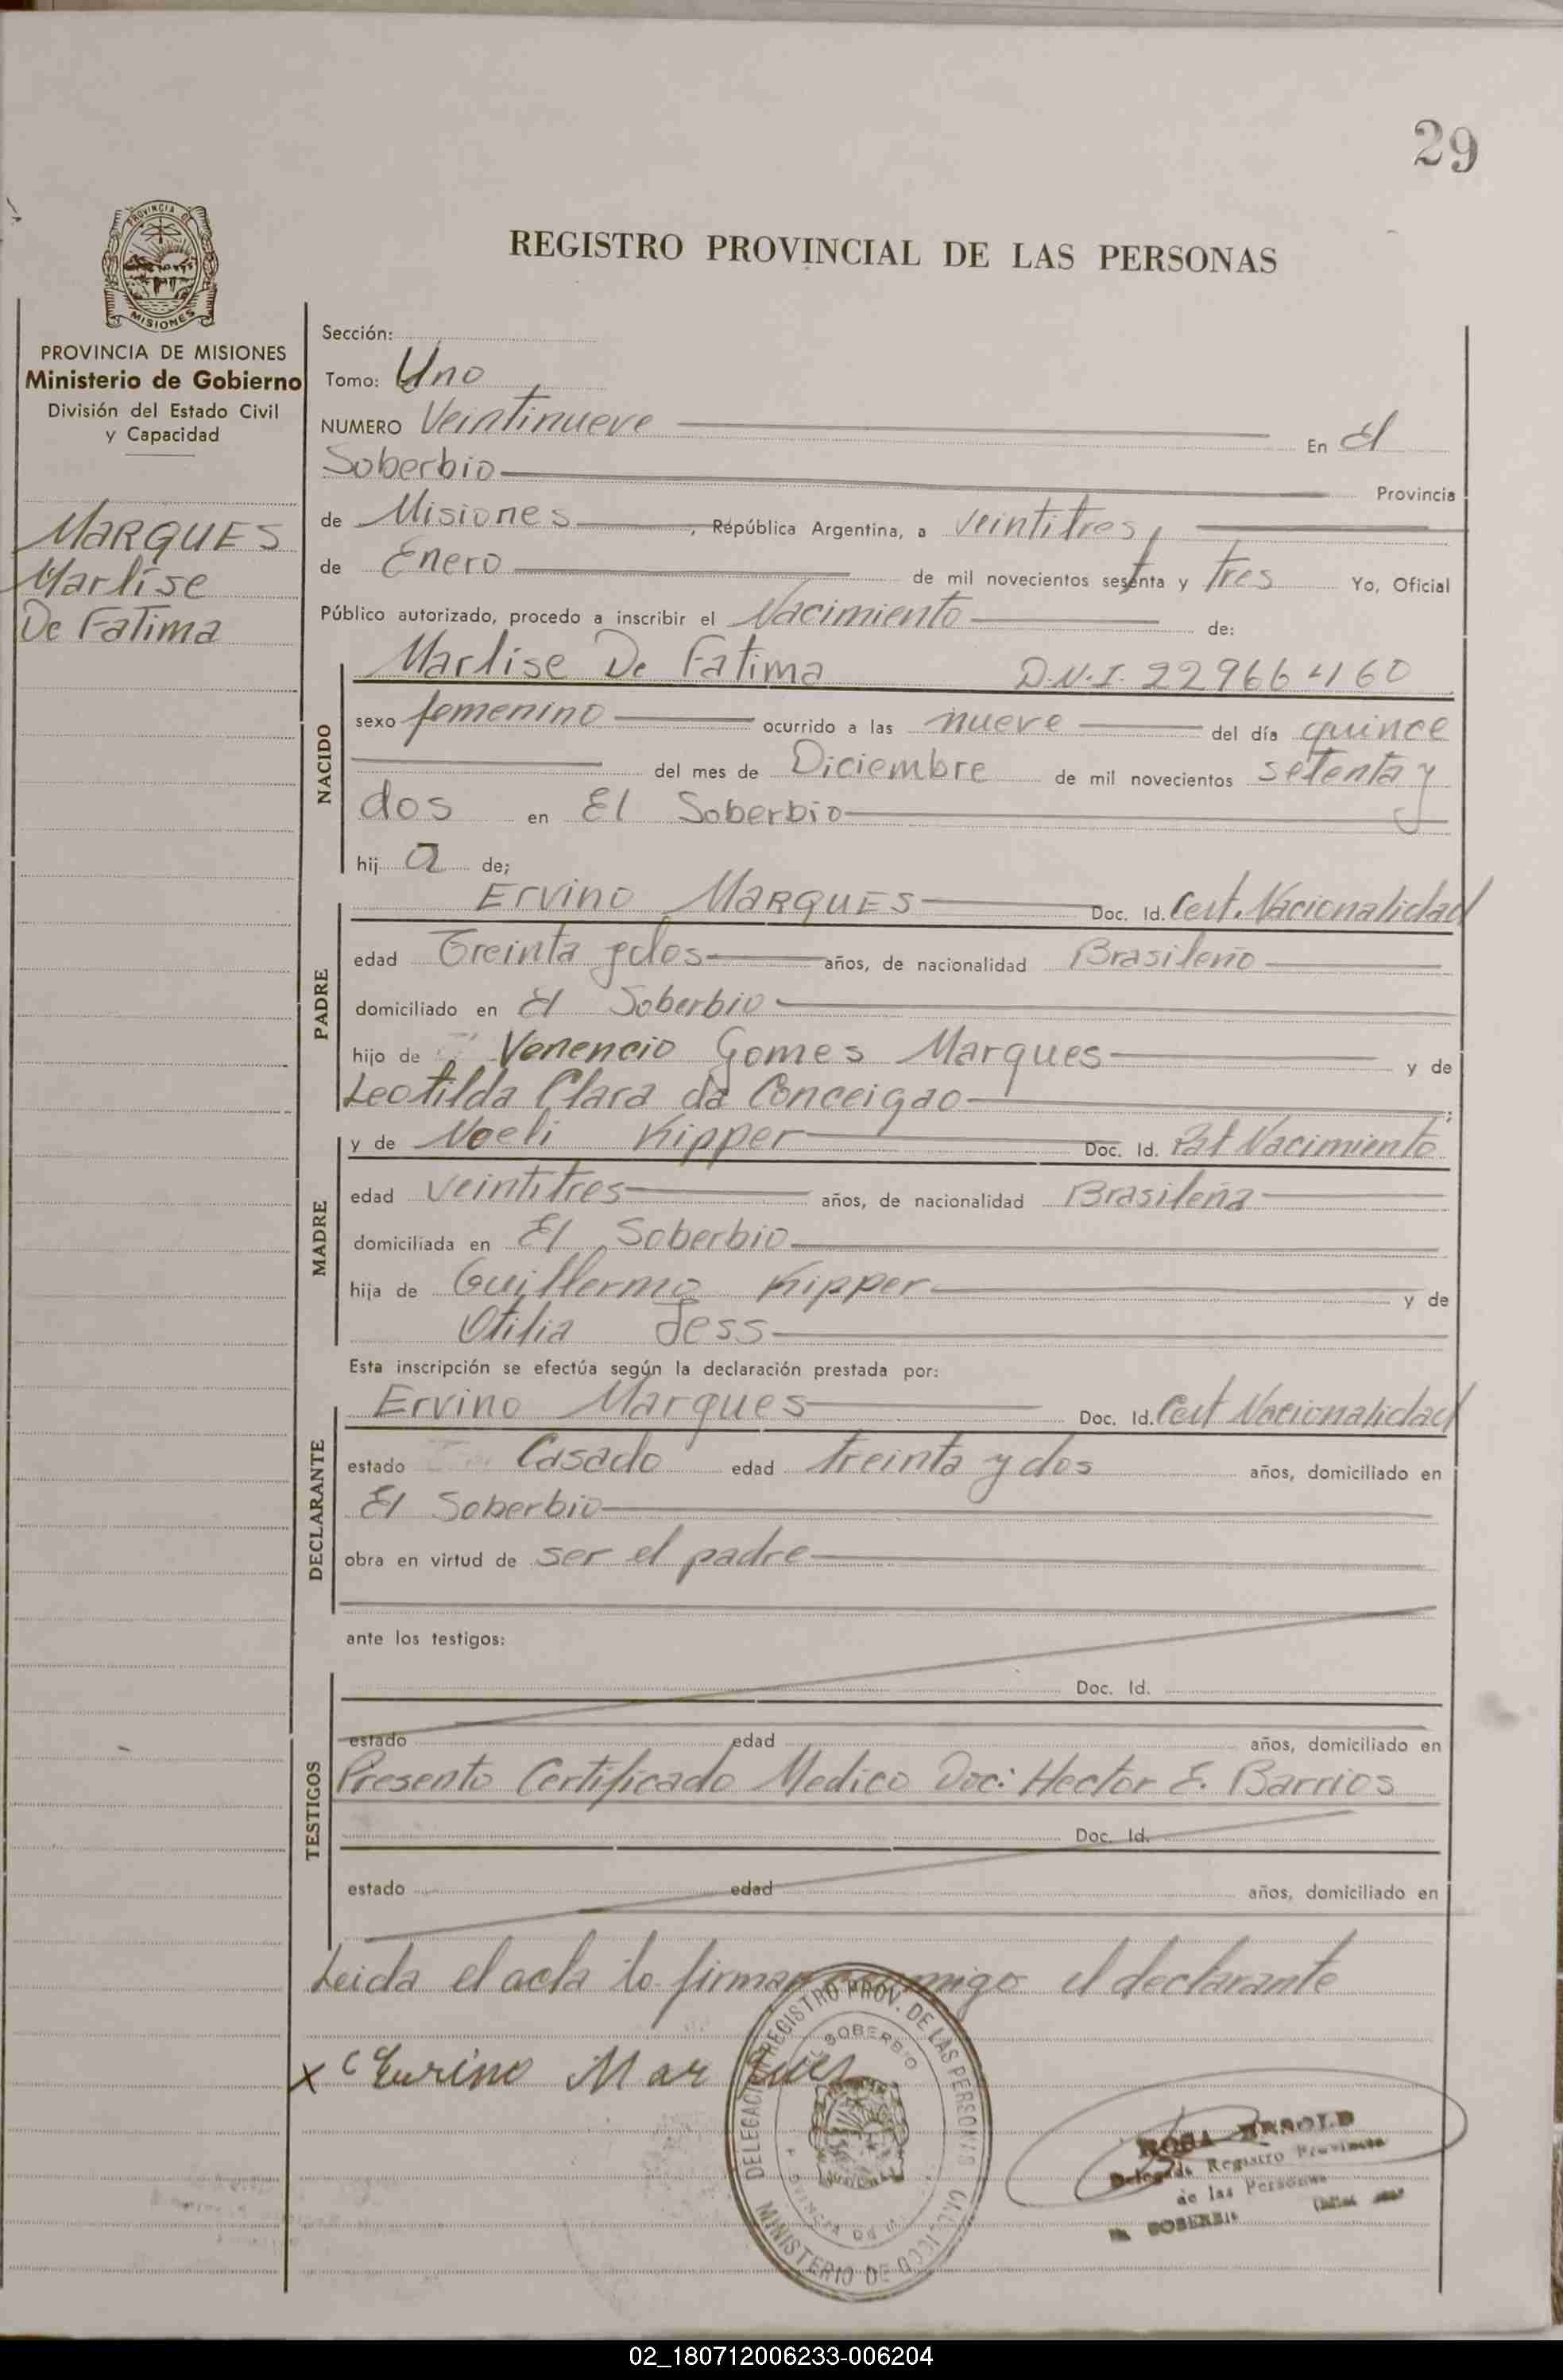 29
REGISTRO PROVINCIAL DE LAS PERSONAS
PROVINCIA DE
MISIONES
PROVINCIA DE MISIONES
Ministerio de Gobierno
División del Estado Civil
y Capacidad
MARQUES
Marlise
De Fatima
Sección:
Tomo: Uno
NUMERO Veintinueve En El
Soberbio Provincia
de Misiones, República Argentina, a veintitres
de Enero de mil novecientos setenta y tres Yo, Oficial
Público autorizado, procedo a inscribir el Nacimiento de:
NACIDO
Marlise De Fatima D.N.I. 22966460
sexo femenino ocurrido a las nueve del día quince
del mes de Diciembre de mil novecientos setenta y
dos en El Soberbio
hij a de;
PADRE
Ervino MARQUES Doc. Id. Cert. Nacionalidad
edad Treinta y dos años, de nacionalidad Brasileño
domiciliado en El Soberbio
hijo de Venencio Gomes Marques y de
Leotilda Clara da Conceigao ;
MADRE
y de Noeli Kipper Doc. Id. Part Nacimiento
edad veintitres años, de nacionalidad Brasileña
domiciliada en El Soberbio
hija de Guillermo Kipper y de
Otilia Jess
Esta inscripción se efectúa según la declaración prestada por:
DECLARANTE
Ervino Marques Doc. Id. Cert Nacionalidad
estado Casado edad treinta y dos años, domiciliado en
El Soberbio
obra en virtud de ser el padre
ante los testigos:
TESTIGOS
Doc. Id.
estado edad años, domiciliado en
Presento Certificado Medico Doc: Hector E. Barrios
Doc. Id.
estado edad años, domiciliado en
Leida el acta lo firman conmigo el declarante
x Eurino Marques
DELEGACION REGISTRO PROV. DE LAS PERSONAS
EL SOBERBIO
MINISTERIO DE GOB.
ROSA
Delegada Registro Provincial
de las Personas
EL SOBERBIO
02_180712006233-006204